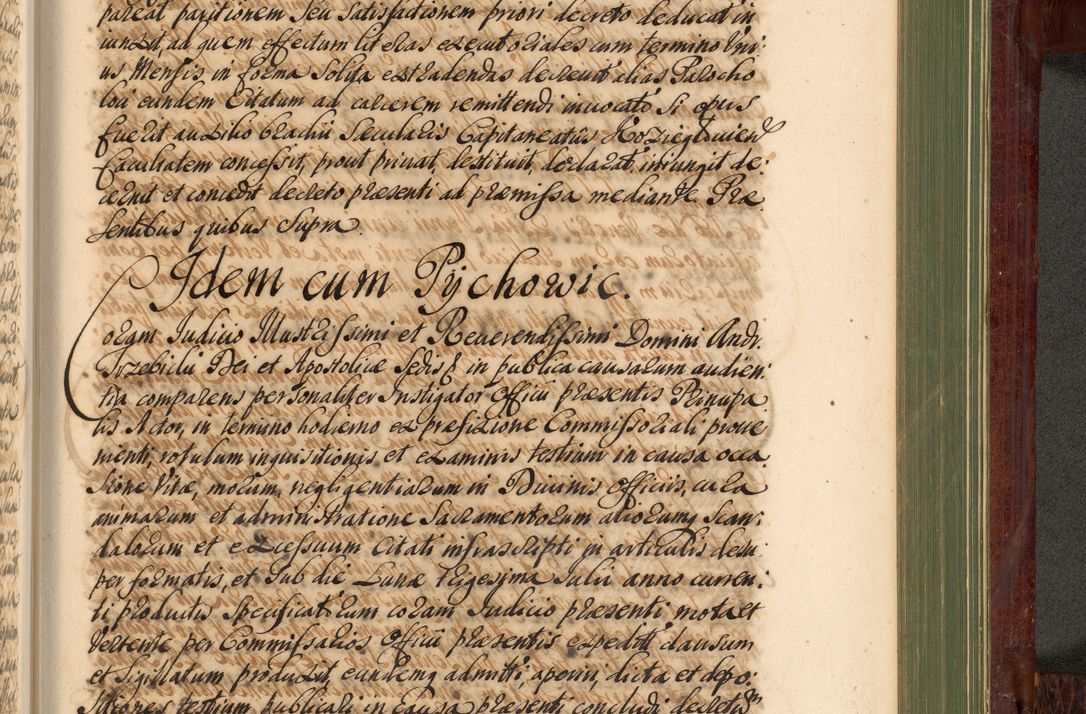 pareat paritionem seu satisfactionem priori decreto deducat in
iunxit, ad quem effectum literas executoriales cum termino Uni,
us Mensis in forma solita extradendas decrevit alias Parocho
loci eundem Citatum ad carcerem remittendi invocato si opus
fuerit auxilio brachii Secularis Capitaneatus Koziegloviens
facultatem concessit, prout privat, destituit, declarat, iniungit de,
cernit et concedit decreto præsenti ad præmissa mediante Præ
sentibus quibus supra.
Idem cum Pychowic.
Coram Judicio Illustrissimi et Reverendissimi Domini Andr.
Trzebicki Dei et Apostolicæ Sedis in publica causarum audien,
tia comparens personaliter Instigator Officii præsentis Prinupa
lis Actor, in termino hodierno ex præfixione Commissoriali prove
nienti, rotulum inquisitionis et examinis testium in causa occa
sione Vitæ, morum, negligentiarum in Divinis Officiis, cura
animarum et administratione Sacramentorum aliorumq Scan,
dalorum et excessuum Citati infrascripti in articulis desu,
per formatis, et sub die Lunæ trigesima Julii anno curren,
ti productis specificatorum coram Judicio præsenti mota et
vertente per Commissarios Officii præsentis expeditt clausum
et sigillatum produxit, eundemq admitti, aperiri, dicta et depo,
sitiones testium publicari in causa præsenti concludi decretum